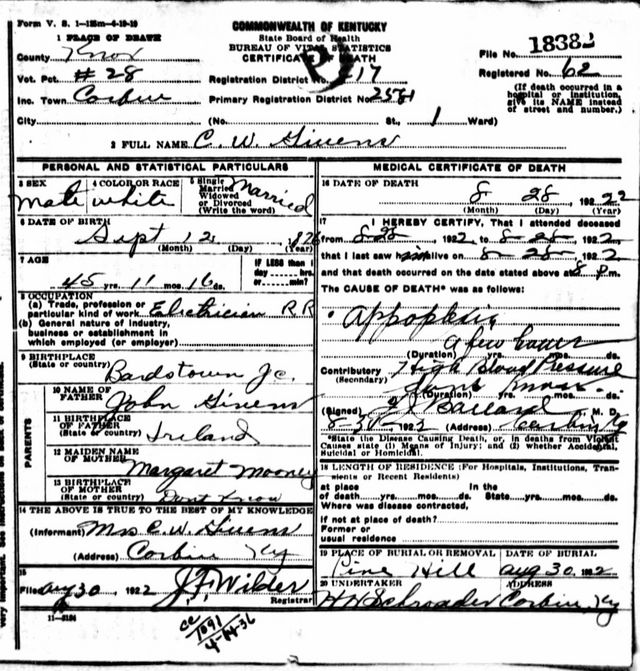 Form V. S. 1-125m-4-19-19
COMMONWEALTH OF KENTUCKY
State Board of Health
BUREAU OF VITAL STATISTICS
CERTIFICATE OF DEATH
1 PLACE OF DEATH
County Knox
Vot. Pct. #28
Inc. Town Corbin
City (No. St., 1 Ward)
Registration District No. 217
Primary Registration District No. 2581
File No. 18382
Registered No. 62
(If death occurred in a
hospital or institution,
give its NAME instead
of street and number.)
2 FULL NAME C. W. Givens
PERSONAL AND STATISTICAL PARTICULARS
3 SEX male
4 COLOR OR RACE white
5 Single Married Widowed or Divorced (Write the word) Married
6 DATE OF BIRTH
Sept 12 1876
(Month) (Day) (Year)
7 AGE
45 yrs. 11 mos. 16 ds.
IF LESS than 1
day hrs.
or min?
8 OCCUPATION
(a) Trade, profession or
particular kind of work Electrician R.R
(b) General nature of industry,
business or establishment in
which employed (or employer)
9 BIRTHPLACE
(State or country)
Bardstown
PARENTS
10 NAME OF
FATHER John Givens
11 BIRTHPLACE
OF FATHER
(State or country) Ireland
12 MAIDEN NAME
OF MOTHER Margaret Mooney
13 BIRTHPLACE
OF MOTHER
(State or country) Dont Know
14 THE ABOVE IS TRUE TO THE BEST OF MY KNOWLEDGE
(Informant) Mrs C. W. Givens
(Address) Corbin Ky
15
Filed Aug 30 1922 J. F. Wilder
Registrar
11-3184
cc
1091
4-14-36
MEDICAL CERTIFICATE OF DEATH
16 DATE OF DEATH
8 28, 1922
(Month) (Day) (Year)
17 I HEREBY CERTIFY, That I attended deceased
from 8-28 1922 to 8-28- 1922
that I last saw him alive on 8-28- 1922
and that death occurred on the date stated above at 8 Pm.
The CAUSE OF DEATH* was as follows:
Appoplexia
a few hours
(Duration) yrs. mos. ds.
Contributory High Blood Pressure
(Secondary)
(Duration) yrs. mos. ds.
(Signed) Ballard M. D.
8-30- 1922 (Address) Corbin Ky
*State the Disease Causing Death, or, in deaths from Violent
Causes state (1) Means of Injury; and (2) whether Accidental,
Suicidal or Homicidal.
18 LENGTH OF RESIDENCE (For Hospitals, Institutions, Tran-
sients or Recent Residents)
at place In the
of death yrs. mos. ds. State yrs. mos. ds.
Where was disease contracted,
if not at place of death?
Former or
usual residence
19 PLACE OF BURIAL OR REMOVAL DATE OF BURIAL
Pine Hill Aug 30, 1922
20 UNDERTAKER ADDRESS
Schroader Corbin, Ky